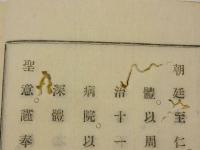 朝廷至仁
體。以周
治十一
病院以
深體
聖意。謹奉